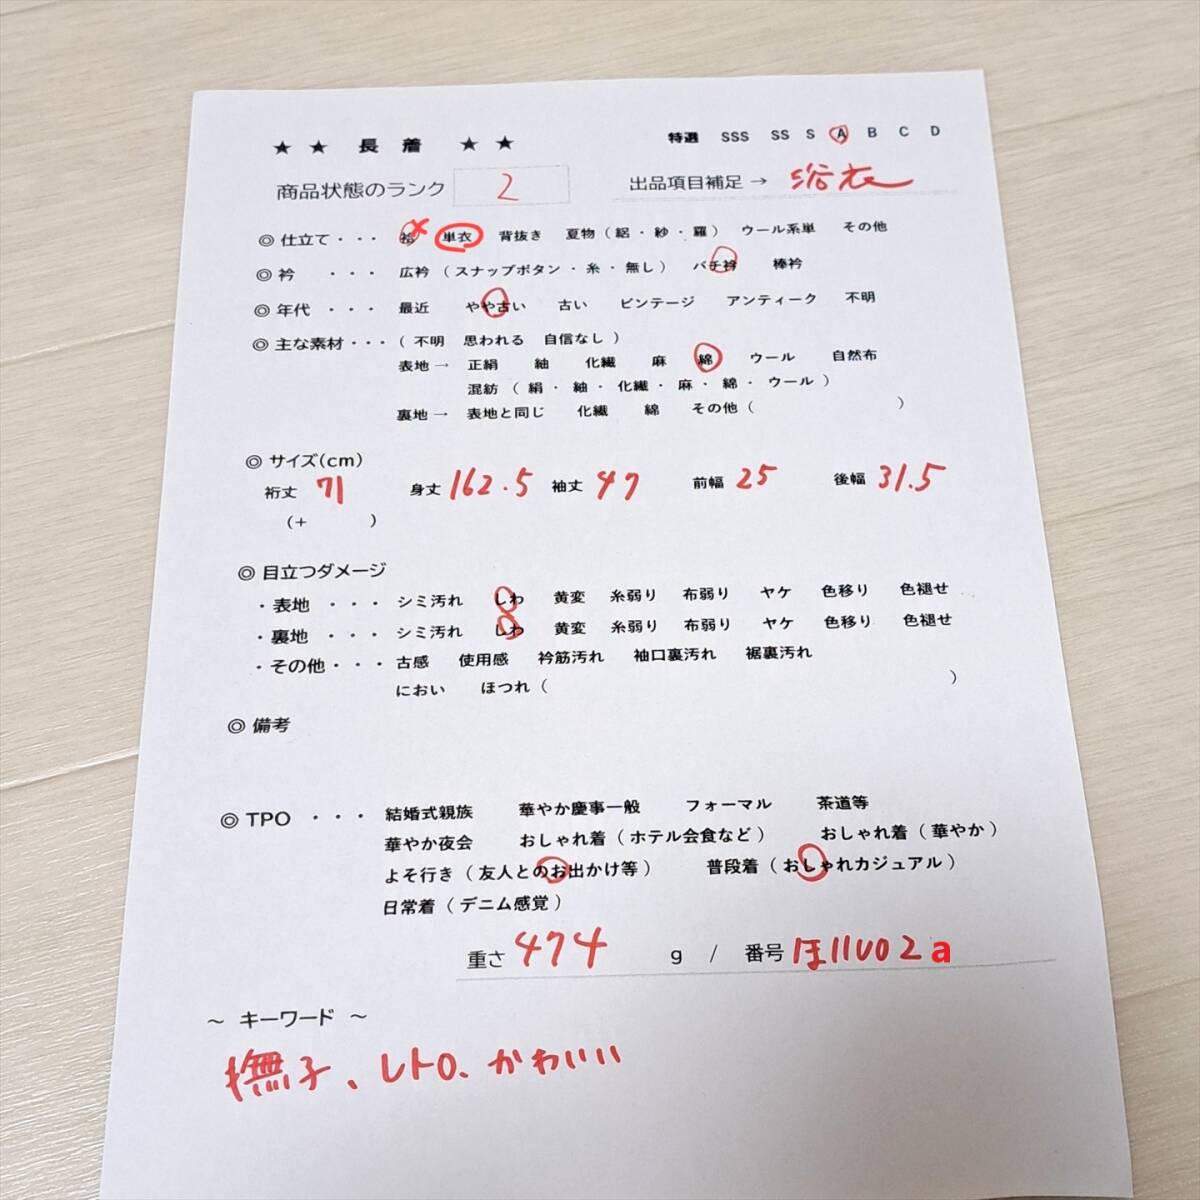 ★ ★ 長 着 ★ ★ 特選 SSS SS S A B C D
商品状態のランク 2 出品項目補足 → 浴衣
◎ 仕立て・・・ 袷 単衣 背抜き 夏物(絽・紗・羅) ウール系単 その他
◎ 衿 ・・・ 広衿(スナップボタン・糸・無し) バチ衿 棒衿
◎ 年代 ・・・ 最近 やや古い 古い ビンテージ アンティーク 不明
◎ 主な素材・・・ (不明 思われる 自信なし)
表地→ 正絹 紬 化繊 麻 綿 ウール 自然布
混紡(絹・紬・化繊・麻・綿・ウール)
裏地→ 表地と同じ 化繊 綿 その他( )
◎ サイズ(cm)
裄丈 71 身丈 162.5 袖丈 47 前幅 25 後幅 31.5
(+ )
◎ 目立つダメージ
・表地 ・・・ シミ汚れ しわ 黄変 糸弱り 布弱り ヤケ 色移り 色褪せ
・裏地 ・・・ シミ汚れ しわ 黄変 糸弱り 布弱り ヤケ 色移り 色褪せ
・その他・・・ 古感 使用感 衿筋汚れ 袖口裏汚れ 裾裏汚れ
におい ほつれ( )
◎ 備考
◎ TPO ・・・ 結婚式親族 華やか慶事一般 フォーマル 茶道等
華やか夜会 おしゃれ着(ホテル会食など) おしゃれ着(華やか)
よそ行き(友人とのお出かけ等) 普段着(おしゃれカジュアル)
日常着(デニム感覚)
重さ 474 g / 番号 a
～ キーワード ～
撫子、レトロ、かわいい